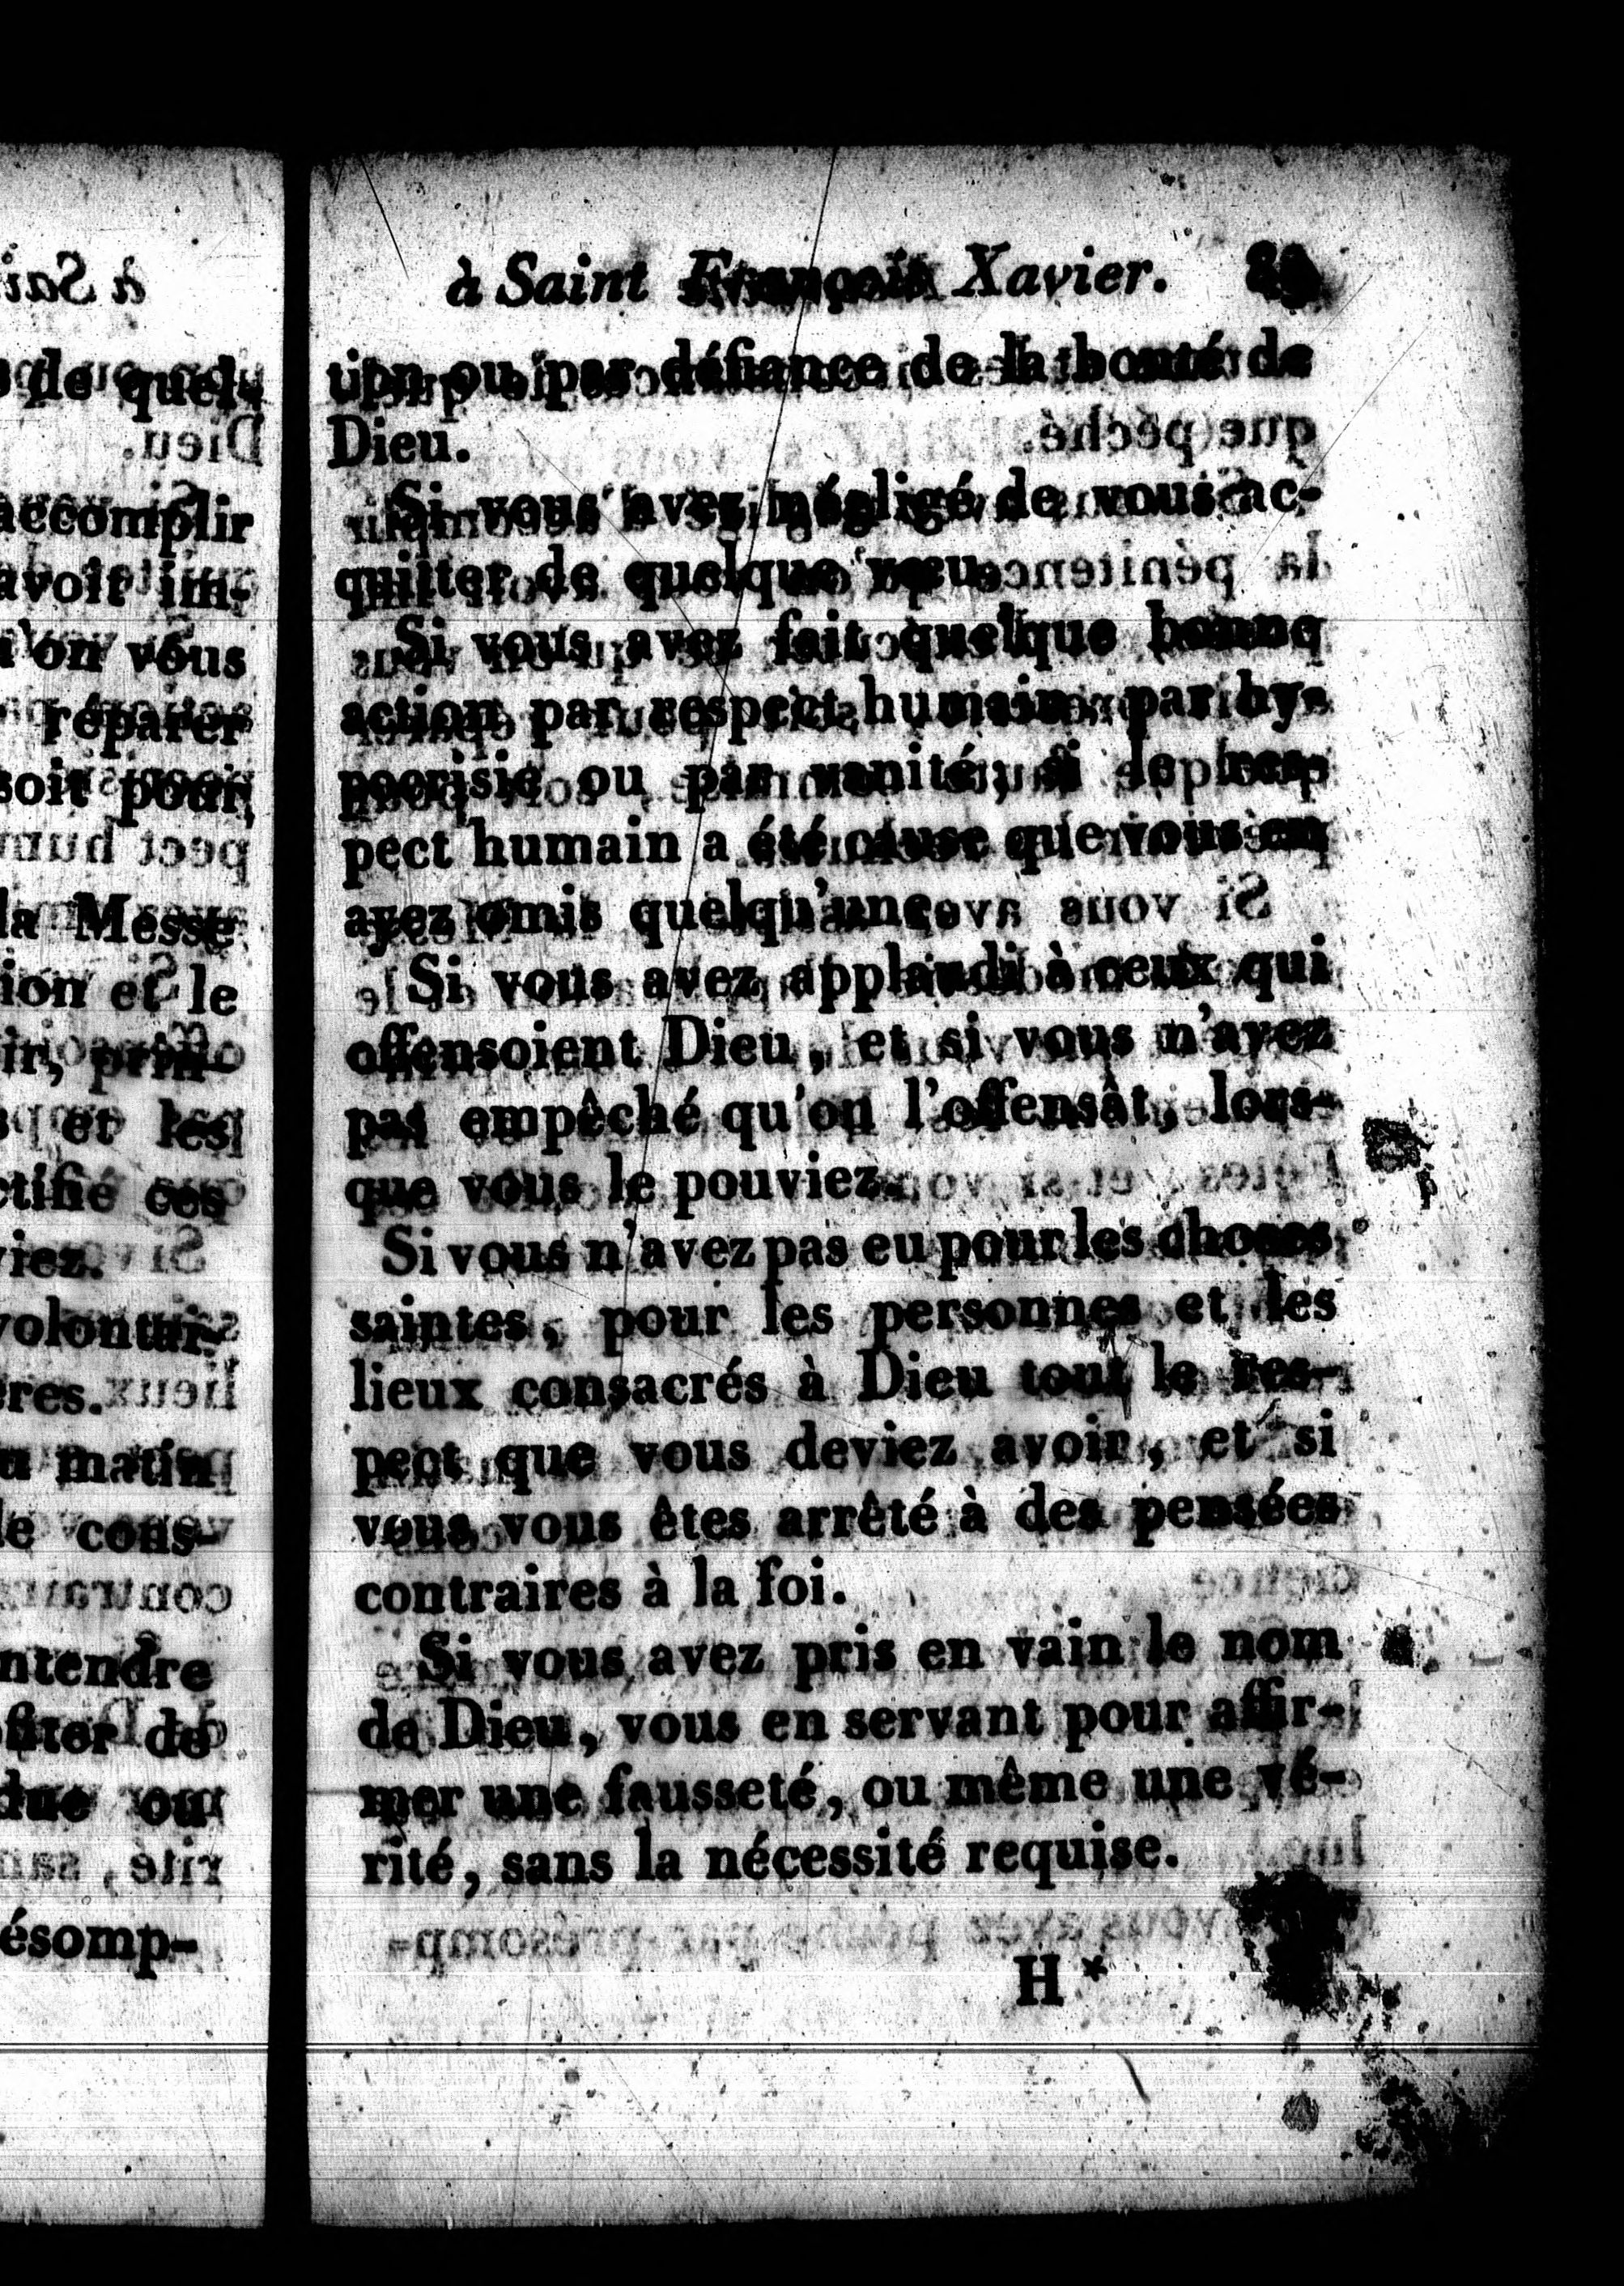 s de quel-
accomplir
avoit im-
on vous
réparer
soit pour
la Messe
ion et le
ir, prin-
s et les
ctifié ces
viez.
volontai-
ères.
u matin
le cons-
ntendre
ofiter de
due ou
ésomp-
à Saint François Xavier. 89
tion ou par défiance de la bonté de
Dieu.
Si vous avez négligé de vous ac-
quitter de quelque vœu.
Si vous avez fait quelque bonne
action par respect humain, par hy-
pocrisie ou par vanité; si le res-
pect humain a été cause que vous en
ayez omis quelqu'une.
Si vous avez applaudi à ceux qui
offensoient Dieu, et si vous n'avez
pas empêché qu'on l'offensât, lors-
que vous le pouviez.
Si vous n'avez pas eu pour les choses
saintes, pour les personnes et les
lieux consacrés à Dieu tout le res-
pect que vous deviez avoir, et si
vous vous êtes arrêté à des pensées
contraires à la foi.
Si vous avez pris en vain le nom
de Dieu, vous en servant pour affir-
mer une fausseté, ou même une vé-
rité, sans la nécessité requise.
H *